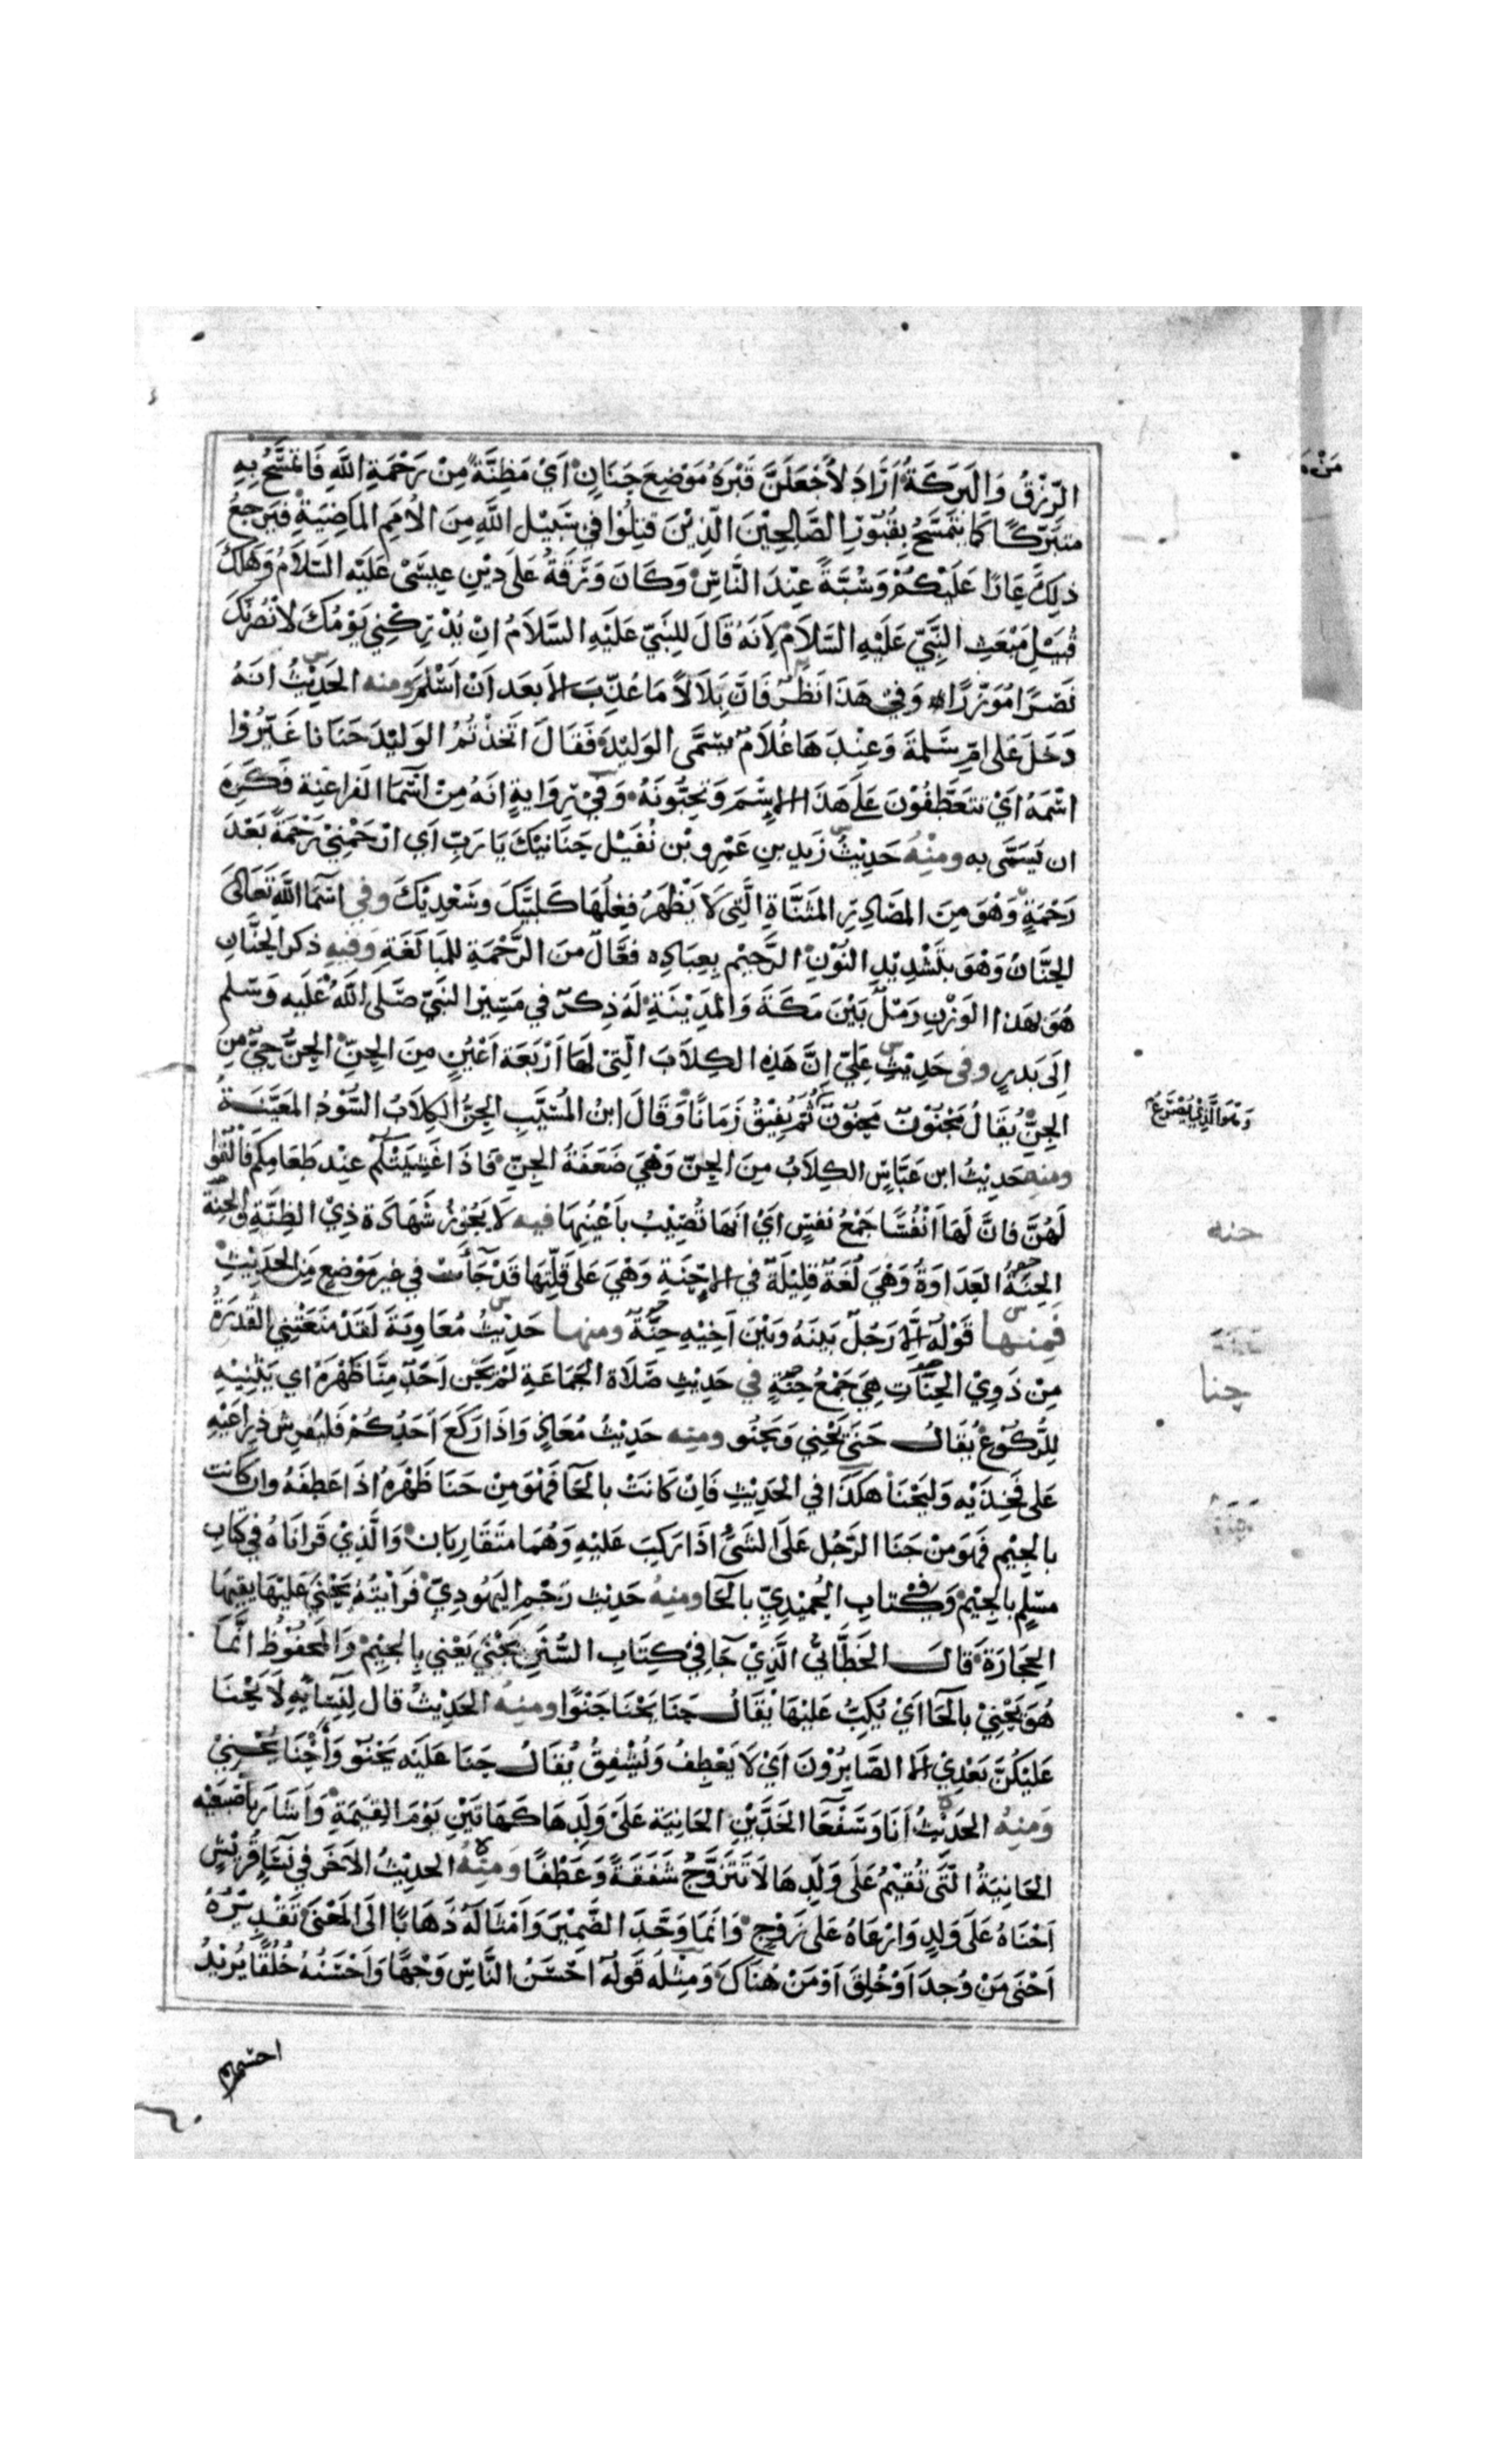 الرِّزْقُ وَالبَرَكَةُ اَرَادَ لَاَجْعَلَنَّ قَبْرَهُ مَوْضِعَ حَنَانٍ اَيْ مَظِنَّةً مِنْ رَحْمَةِ اللَّهِ فَاَتَمَسَّحُ بِهِ
متبرِّكًا كَمَا يُتَمَسَّحُ بِقُبُوْرِ الصَّالِحِيْنَ الَّذِيْنَ قُتِلُوْا فِي سَبِيْلِ اللَّهِ مِنَ الاُمَمِ المَاضِيَةِ فَيَرْجِعُ
ذلِكَ عَارًا عَلَيْكُمْ وَسُبَّةً عِنْدَ النَّاسِ وَكَانَ وَرَقَةُ عَلَى دِيْنِ عِيسَى عَلَيْهِ السَّلَامُ وَهَلَكَ
قُبَيْلَ مَبْعَثِ النَّبِيِّ عَلَيْهِ السَّلَامُ لِاَنَهُ قَالَ لِلنَبِيِّ عَلَيْهِ السَّلَامُ اِنْ يُدْرِكْنِي يَوْمُكَ لَاَنْصُرَنَّكَ
نَصْرًا مُوَزَّرًا وَفِيْ هَذَا نَظَرٌ فَاِنَّ بِلَالًا مَا عُذِّبَ اِلا بَعدَ اَنْ اَسْلَمَ ومنه الحَدِيْثُ اَنَهُ
دَخَلَ عَلَى اُمِّ سَلمَةَ وَعِنْدَهَا غُلَامٌ يسَمَّى الوَلِيْدَ فَقَالَ اتَخَذْتُمُ الوَلِيْدَ حَنَانا غَيِّرُوْا
اسْمَهُ اَيْ تَتَعَطَّفُوْنَ عَلَى هَذَا الاِسْمَ وَتُحِبُّونَهُ وَفِيْ رِوَايةٍ اَنَهُ مِنْ اَسْمَا الفَرَاعِنِة فَكَرِهَ
ان يُسَمَّى به ومنْهُ حَدِيْثُ زَيدِ بنِ عَمْرِو بْن نُفَيْل حَنَانَيْكَ يَا رَبِّ اَي ارْحَمْنِيْ رَحْمَةً بَعْدَ
رَحْمَةٍ وَهْوَ مِنَ المَصَادِرِ المُثَنَّاةِ الَّتِى لَا يَظْهَرُ فِعْلُهَا كَلَبَّيْكَ وسَعْدَيْكَ وفي اسْمَا اللَّهِ تَعَالَى
الحَنَّانُ وَهْوَ بتَشْدِيْدِ النُوْنِ الرَّحِيْم بِعِبَادِه فعَّالٌ منَ الرَّحْمَةِ لِلمُبَالَغَةِ وَفِيهِ ذكر الحَنَّانِ
هُوَ بهَذا الوَزْنِ رَمْلٌ بَيْنَ مَكَةَ وَالمَدِيْنَةِ لَهُ ذِكرٌ في مَسِيْرِ النَبِيِّ صَلَى اللهُ عَلَيه وَسَلم
اِلَى بَدرٍ وفى حَدِيْثِ عَلِيٍّ اِنَّ هَذِهِ الكِلَابَ الَّتِىْ لَهَا اَرْبَعَة اَعْيُنٍ مِنَ الحِنِّ الحِنُّ حَيٌّ مِنَ
الجِنِّ يُقَالُ مَجْنُوْنٌ مَحِنُوْنٌ ثُمَّ يُفِيْقُ زَمَانًا وَقَالَ ابنُ المُسَيَّبِ الحِنُّ الكِلَابُ السُّوْدُ المعَيَّنَةُ
ومنه حَدِيْثُ ابن عَبَّاسٍ الكِلَابُ مِنَ الحِنِّ وَهْيَ ضَعَفَةُ الجِنِّ فَاذَا غَشِيَتْكُم عِنْدَ طَعَامِكُم فَاَلْقُوْا
لَهُنَّ فَانَّ لَهَا اَنْفُسًا جَمْعُ نَفسٍ اَيْ اَنَهَا تُصِيْبُ بِاَعْيُنِهَا فيه لَا يَجُوْزُ شَهَادَةُ ذِيْ الظِنَّةِ وَالحِنَةِ
الحِنَةُ العَدَاوَةُ وَهْيَ لُغَةٌ قَلِيْلَةٌ فِي الاِحْنَةِ وَهْيَ عَلَى قِلَّتِهَا قَدْ جَآءَتْ فِي غير مَوْضِعٍ مِنَ الحَدِيْثِ
فَمِنْهَا قَوْلُهُ اِلَّا رَجُلٌ بَينَهُ وَبَيْنَ اَخِيْهِ حِنَةٌ ومنها حَدِيْثُ مُعَاوِيَةَ لَقَدْ مَنَعَتْنِي القُدْرَةُ
مِنْ ذَوِيْ الحِنَاتِ هِيَ جَمْعُ حِنَةٍ في حَدِيْثِ صَلَاةِ الجَمَاعَةِ لَمْ يَحْنِ اَحَدٌ مِنَّا ظَهْرَهُ اي يَثْنِيْهِ
لِلرُّكُوْعِ يُقَالُ حَنَى يَحْنِي وَيَحْنُو ومِنه حَدِيْثُ مُعَاذٍ وَاِذَا رَكَعَ اَحَدُكُمْ فَليَفرِش ذِرَاعَيْهِ
عَلى فَخِذَيْهِ وَليَحْنَا هكَذَا في الحَدِيْثِ فَاِنْ كَانَتْ بالحَا فَهْوَ مِنْ حَنَا ظَهْرَهُ اذَا عَطفَهُ وان كَانت
بالجِيْمِ فَهوَ مِنْ جَنَا الرَّجُل عَلَى الشَيْ اذَا رَكِبَ عَلَيْهِ وَهُمَا متَقَارِبَان وَالَّذِيْ قَرانَاهُ في كتَابِ
مسْلِمٍ بالجِيْمِ وَفِيْ كتَابِ الحُمَيْدِيِّ بالحَا ومِنهُ حَدِيْث رَجْمِ اليَهُودِيِّ فَرَاَيْتُهُ يَحْنِي عَليْهَا يقِيهَا
الحِجَارَةَ قَالَ الخَطَّابِيُّ الَّذِيْ جَا فِيْ كِتَابِ السُّنَنِ يَجْنِي يَعْنِي بِالجِيْمِ وَالمَحْفُوْظ اِنَّمَا
هُوَ يَحْنِيْ بالحَا اَيْ يُكِبُّ عَلَيْهَا يُقَالُ حَنَا يَحْنَا حَنْوًا ومنِهُ الحَدِيْثُ قال لِنِسَائِهِ لَا يَحْنَا
عَلَيْكُنَّ بَعْدِيْ اِلا الصَّابِرُوْنَ اَيْ لَا يَعْطِفُ وَيُشْفِقُ يُقَالُ حَنَا عَلَيْه يَحْنُوْ وَاَحْنَا يُحْنِيْ
وَمنِهُ الحَدِيْثُ اَنَا وَسَفْعَا الخَدَّيْنِ الحَانِيَة عَلَى وَلَدِهَا كَهَاتَيْنِ يَوْمَ القِيَمَةِ وَاَشَارَ بِاِصْبَعَيْهِ
الحَانِيَةُ الَّتَى تُقِيْمُ عَلَى وَلَدِهَا لَا تَتَزَوَّجُ شَفَقَةً وَعَطْفًا وَمنِهُ الحدِيْثُ الآخَر في نِسَاءِ قُرَيْشٍ
اَحْنَاهُ عَلَى وَلَدٍ وَارْعَاهُ عَلى زَوْجٍ وَاِنَمَا وَحَّدَ الضَّمِيْرَ وَامْثَالَهُ ذَهَابًا اِلَى المَعْنَى تَقْدِيْرُهُ
اَحْنَى مَنْ وُجِدَ اَوْ خُلِقَ اَوْ مَنْ هُنَاكَ وَمِثْلُه قَوْلُهُ احْسَنُ النَّاسِ وَجْهًا وَاحْسَنُهُ خُلُقًا يُرِيْدُ
احسنهم
وَهُوَ الَّذِيْ يُصْرَعُ
حنه
حنا